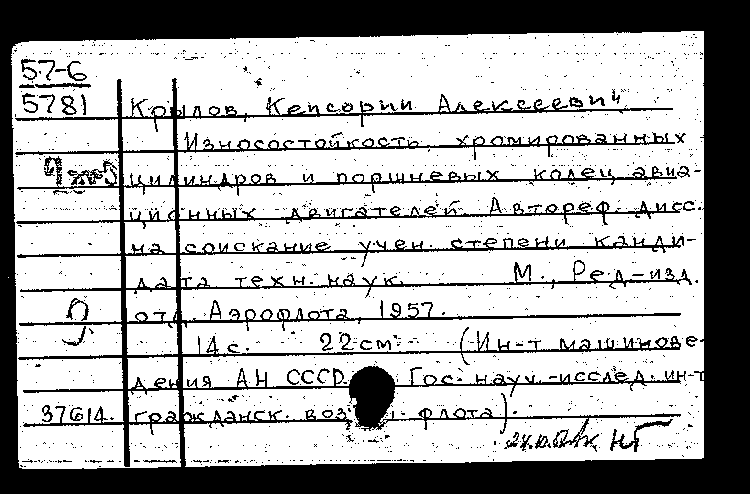 57-6
5781
Крылов, Кенсорин Алексеевич
Износостойкость хромированных
цилиндров и поршневых колец авиа-
ционных двигателей. Автореф. дисс.
на соискание учен. степени канди-
дата техн. наук. М., Ред-изд.
отд. Аэрофлота, 1957.
14 с. 22 см. (Ин-т машинове-
дения АН СССР. Гос. науч.-исслед. ин-т
37614. гражданск. флота).
НГ